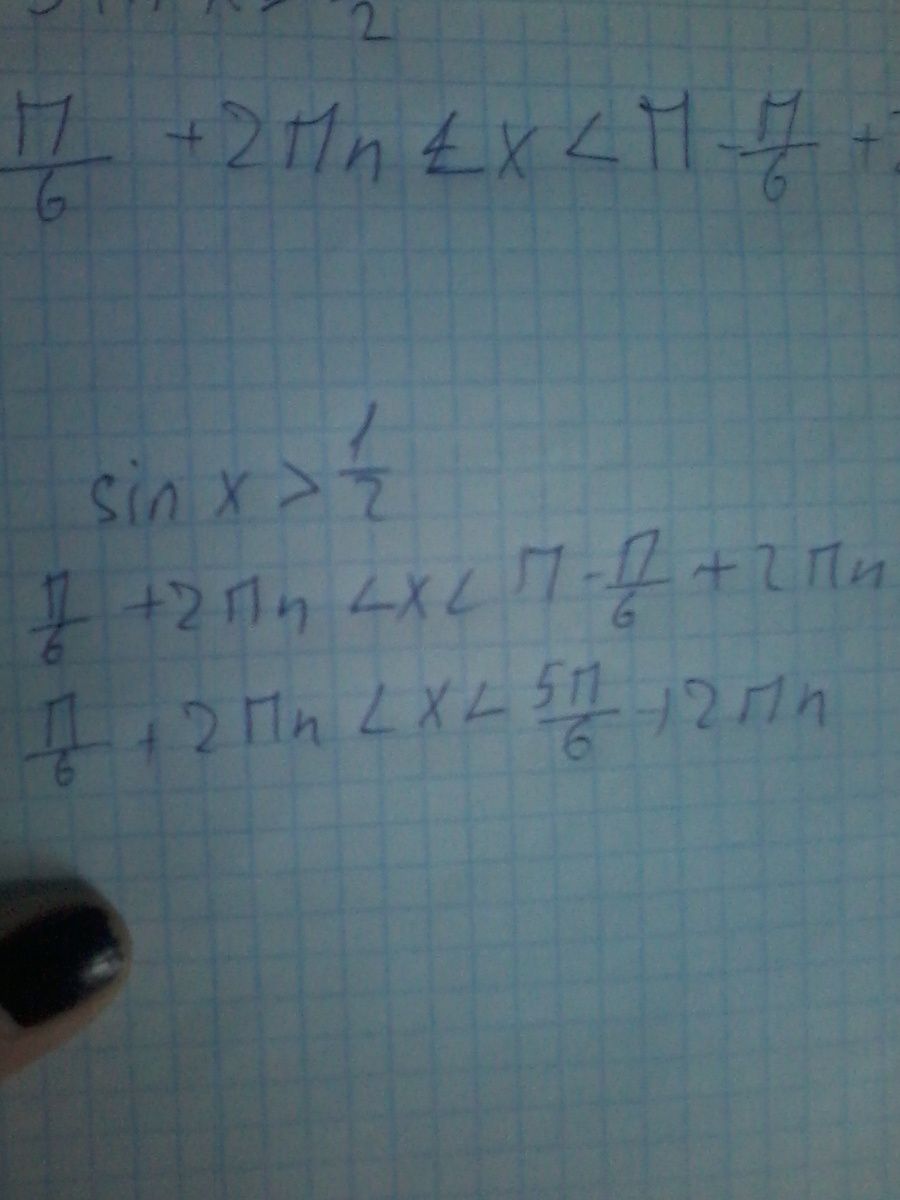 sin x > 1/2
π/6 + 2πn < x < π - π/6 +
sin x > 1/2
π/6 + 2πn < x < π - π/6 + 2πn
π/6 + 2πn < x < 5π/6 + 2πn